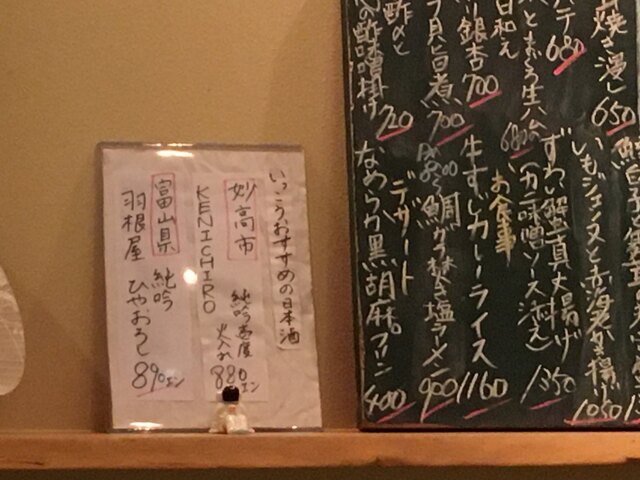 いっこうおすすめの日本酒
妙高市
KENICHIRO
純吟
火入れ
880エン
富山県
羽根屋
純吟
ひやおろし
890エン
焼き浸し
650
いもジェンヌと
揚げ
1050
680
ずわい蟹真丈揚げ
(カニ味噌ソース添え)
1350
と まぐろ生ハム
680
日和え
お食事
り銀杏
700
牛すじカレーライス
1160
旨煮
700
鯛
塩ラーメン
900
酢〆と
デザート
の酢味噌掛け
720
なめらか黒胡麻プリン
400